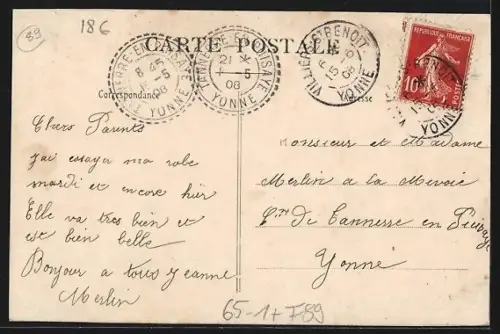 89
186
CARTE POSTALE
TANNERRE-EN-PUISAYE
21 *
1-5
08
YONNE
8 45
-5
08
YONNE
VILLIERS-ST BENOIT
1-5
08
YONNE
10
POSTES
Correspondance
Adresse
Chers Parents
j'ai essayer ma robe
mardi et encore hier
Elle va tres bien et
est bien belle
Bonjour a tous Jeanne
Merlin
Monsieur et Madame
Merlin a la
Cne De Tannerre en Puisaye
Yonne
65-1+F89